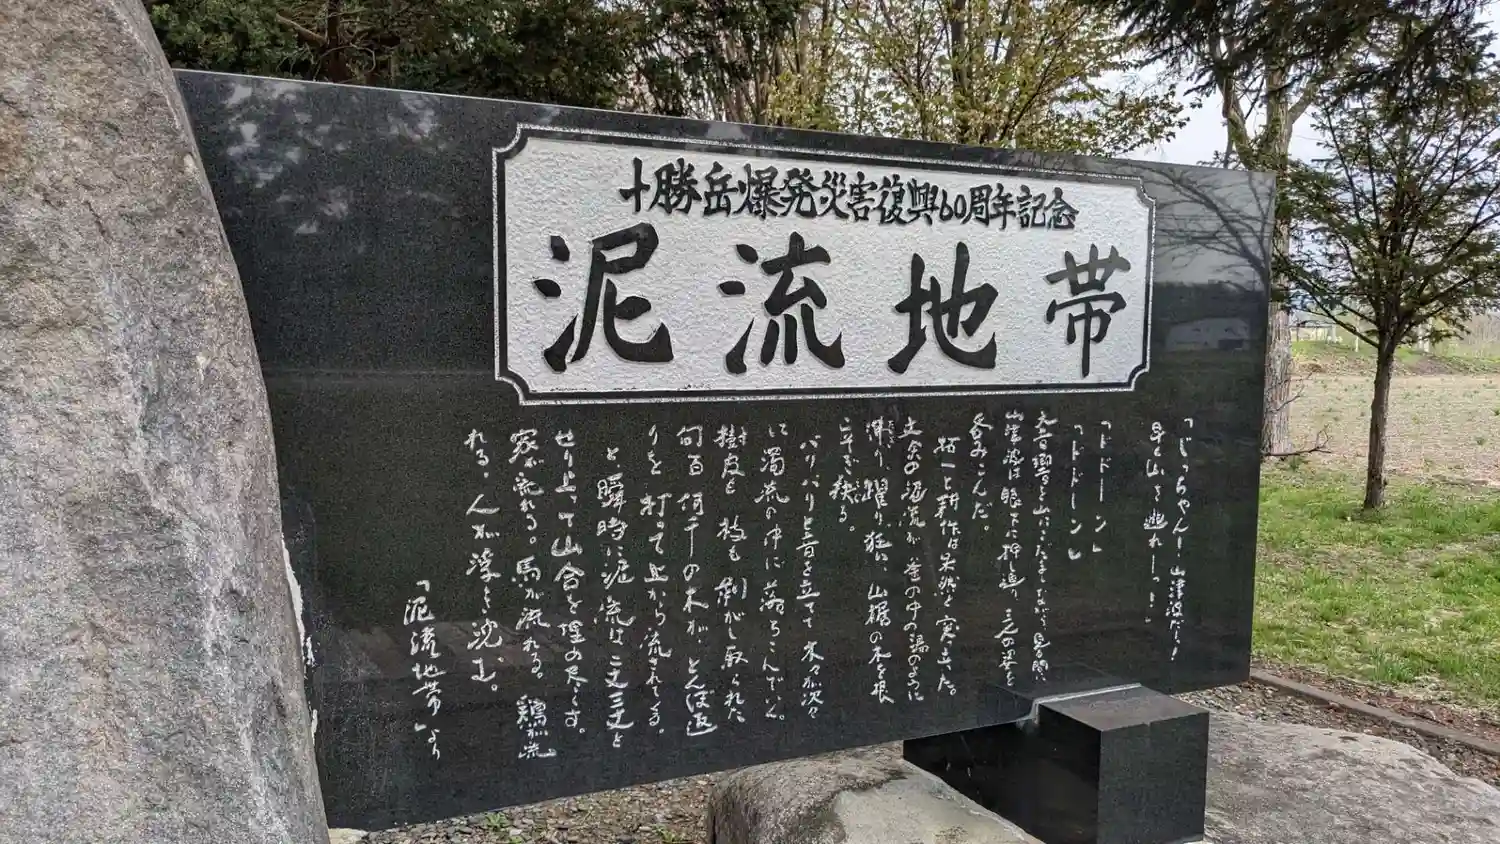 十勝岳爆発災害復興60周年記念
泥流地帯
「じっちゃんーっ!山津波だーっ!
早く山さ逃れーっ!」
「ドドーン」
「ドドーン」
山津波は眼下に押し迫り、三尺の巣を
呑みこんだ。
拓一と耕作は呆然と突っ立った。
丈余の泥流が、釜の中の湯のように
沸り、躍り狂い、山裾の木を根
こそぎ抉る。
バリバリと音を立てて、木々が次々
に濁流の中に落ちこんでいく。
樹皮も枝も剥がし取られた
何百何千の木が、とんぼ返
りを打って上から流されてくる。
と瞬時に泥流は二丈三丈と
せり上って山合を埋め尽くす。
家が流れる。馬が流れる。鶏が流
れる。人が浮き沈む。
「泥流地帯」より